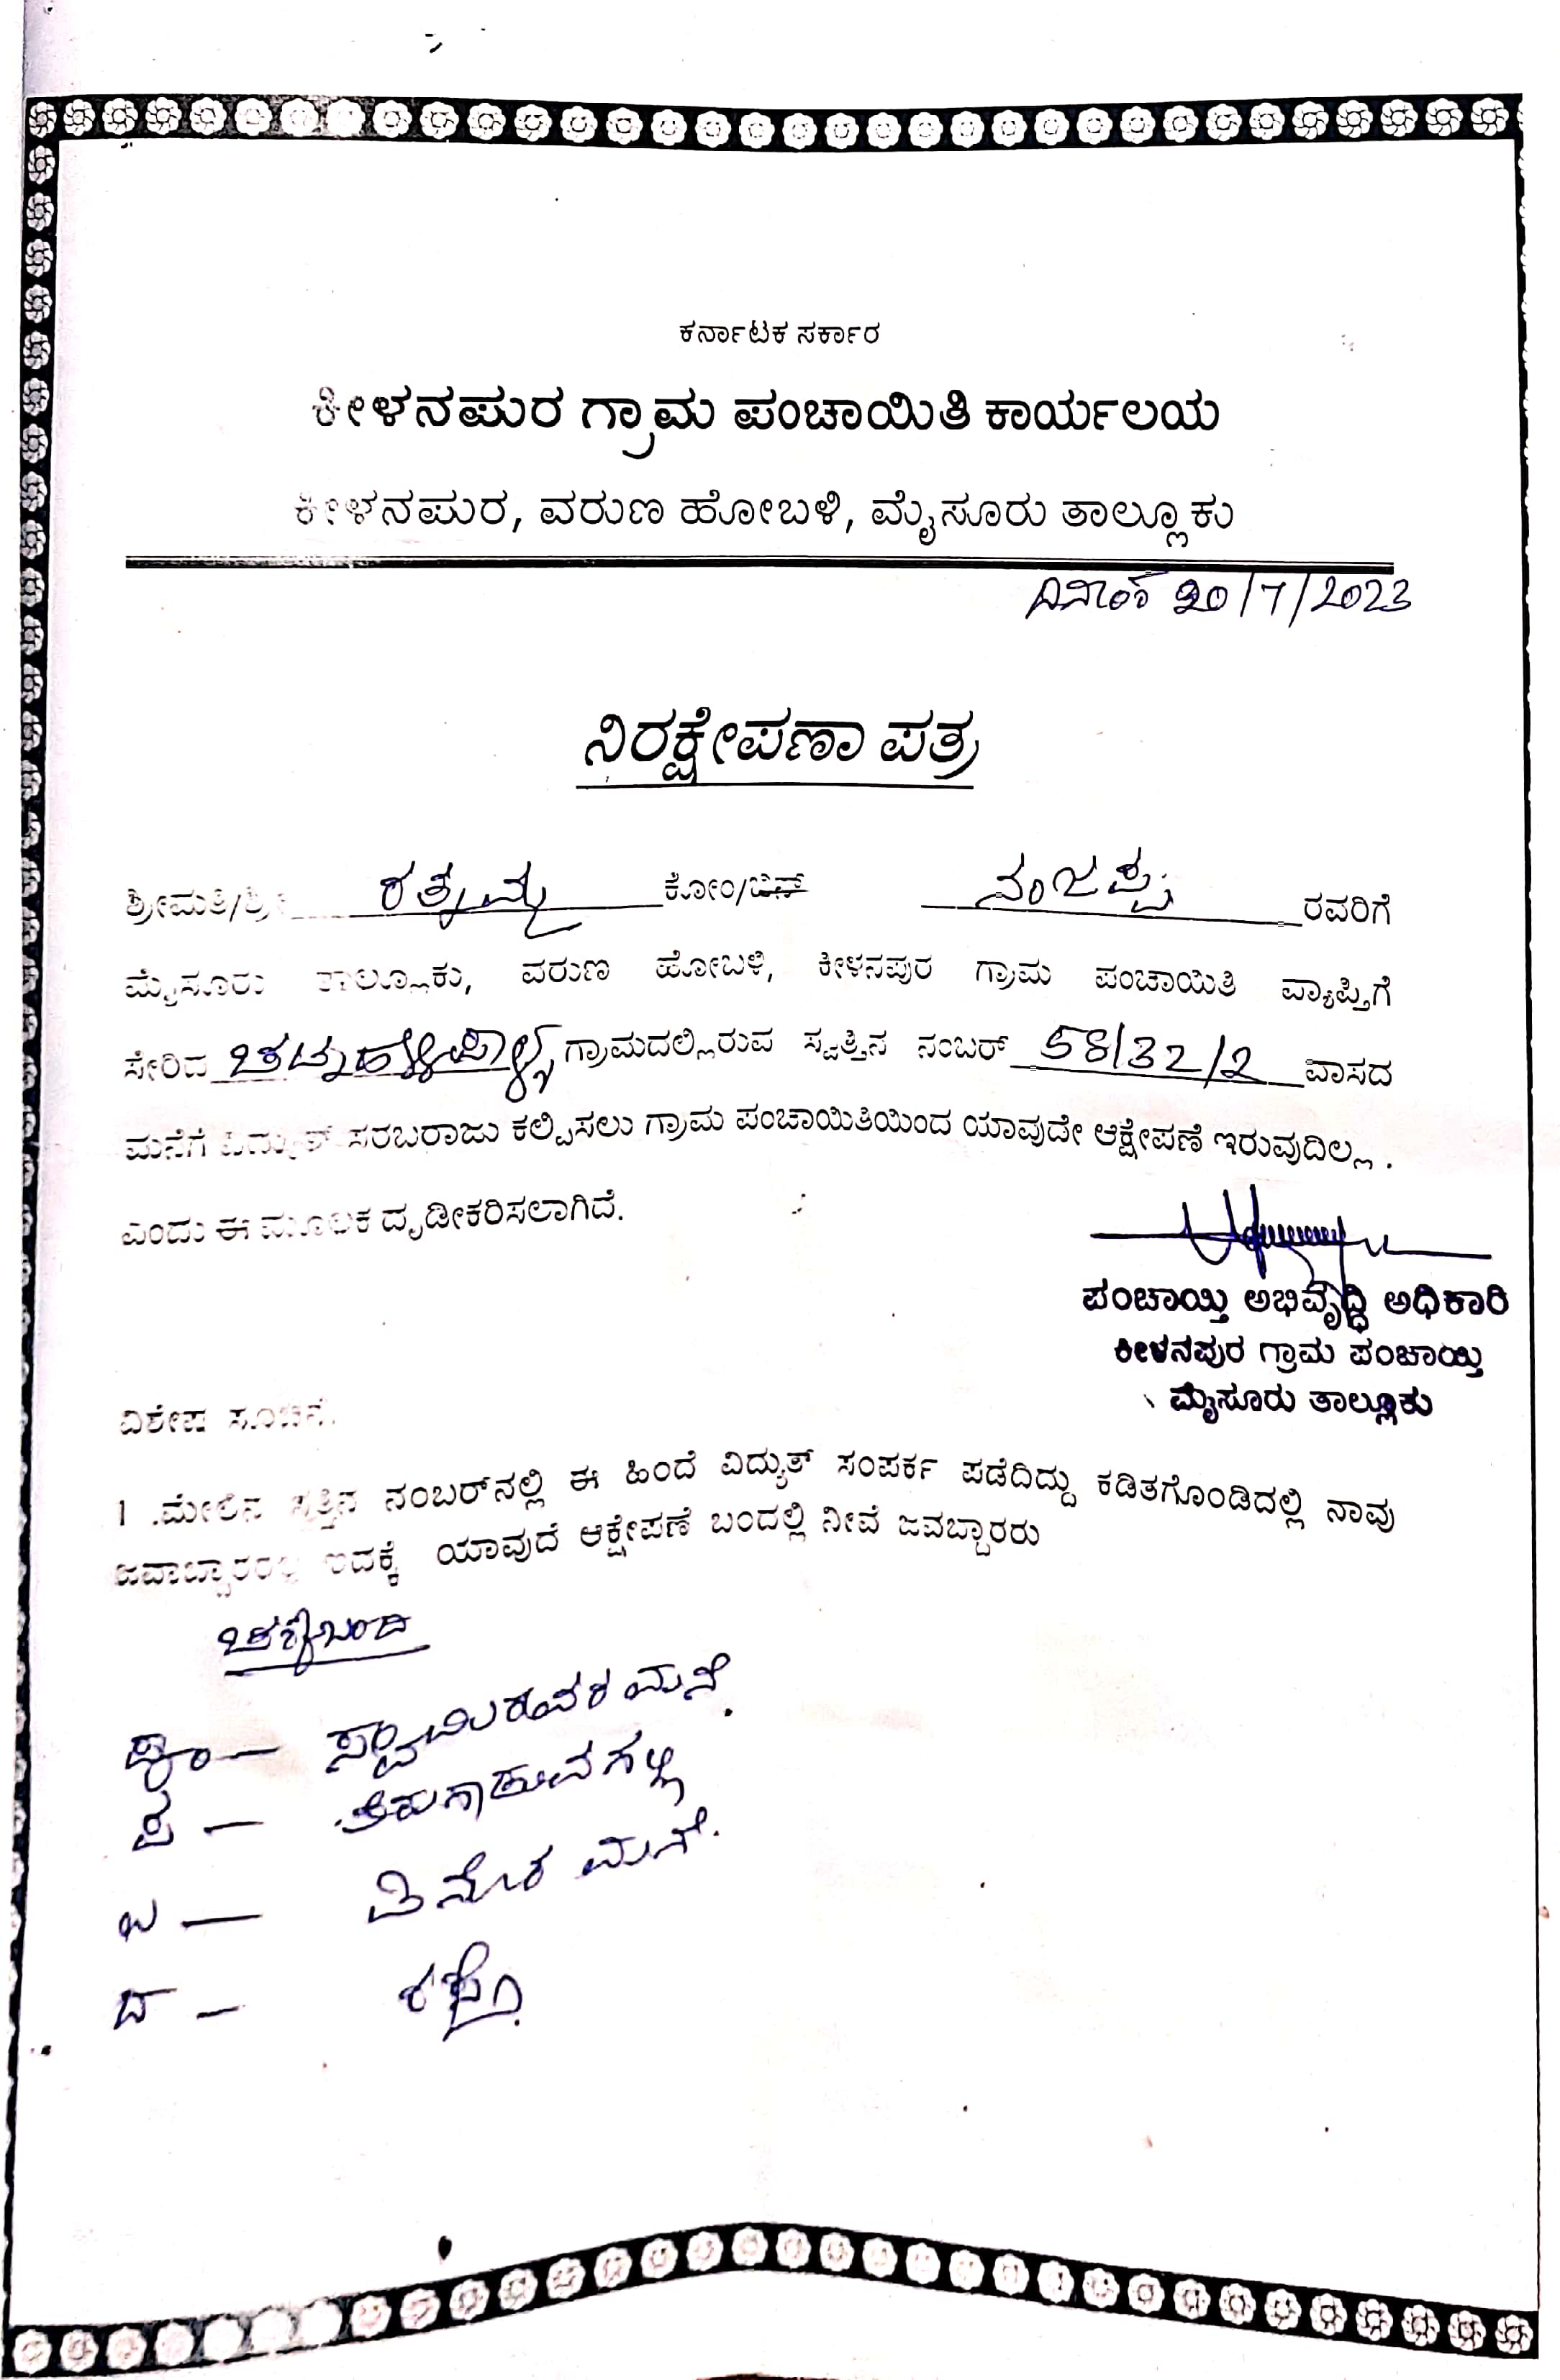 ಕರ್ನಾಟಕ ಸರ್ಕಾರ
ಕೀಳನಪುರ ಗ್ರಾಮ ಪಂಚಾಯಿತಿ ಕಾರ್ಯಲಯ
ಕೀಳನಪುರ, ವರುಣ ಹೋಬಳಿ, ಮೈಸೂರು ತಾಲ್ಲೂಕು
ದಿನಾಂಕ 20/7/2023
ನಿರಕ್ಷೇಪಣಾ ಪತ್ರ
ಶ್ರೀಮತಿ/ಶ್ರೀ ರತ್ನಮ್ಮ ಕೋಂ/ಬಿನ್ ನಂಜಪ್ಪ ರವರಿಗೆ
ಮೈಸೂರು ತಾಲ್ಲೂಕು, ವರುಣ ಹೋಬಳಿ, ಕೀಳನಪುರ ಗ್ರಾಮ ಪಂಚಾಯಿತಿ ವ್ಯಾಪ್ತಿಗೆ
ಸೇರಿದ ಗ್ರಾಮದಲ್ಲಿರುವ ಸ್ವತ್ತಿನ ನಂಬರ್ 58/32/2 ವಾಸದ
ಮನೆಗೆ ವಿದ್ಯುತ್ ಸರಬರಾಜು ಕಲ್ಪಿಸಲು ಗ್ರಾಮ ಪಂಚಾಯಿತಿಯಿಂದ ಯಾವುದೇ ಆಕ್ಷೇಪಣೆ ಇರುವುದಿಲ್ಲ .
ಎಂದು ಈ ಮೂಲಕ ದೃಡೀಕರಿಸಲಾಗಿದೆ.
ಪಂಚಾಯ್ತಿ ಅಭಿವೃದ್ಧಿ ಅಧಿಕಾರಿ
ಕೀಳನಪುರ ಗ್ರಾಮ ಪಂಚಾಯ್ತಿ
ಮೈಸೂರು ತಾಲ್ಲೂಕು
ವಿಶೇಷ ಸೂಚನೆ.
1 .ಮೇಲಿನ ಸ್ವತ್ತಿನ ನಂಬರ್‌ನಲ್ಲಿ ಈ ಹಿಂದೆ ವಿದ್ಯುತ್ ಸಂಪರ್ಕ ಪಡೆದಿದ್ದು ಕಡಿತಗೊಂಡಿದಲ್ಲಿ ನಾವು
ಜವಾಬ್ದಾರರಲ್ಲ ಇದಕ್ಕೆ ಯಾವುದೆ ಆಕ್ಷೇಪಣೆ ಬಂದಲ್ಲಿ ನೀವೆ ಜವಬ್ದಾರರು
ಚಕ್ಕುಬಂದಿ
ಪೂ — ಸ್ವಾಮಿರವರ ಮನೆ.
ಪ — ತಿರುಗಾಡುವ ಗಲ್ಲಿ
ಉ — ಮನೆ.
ದ — ರಸ್ತೆ.